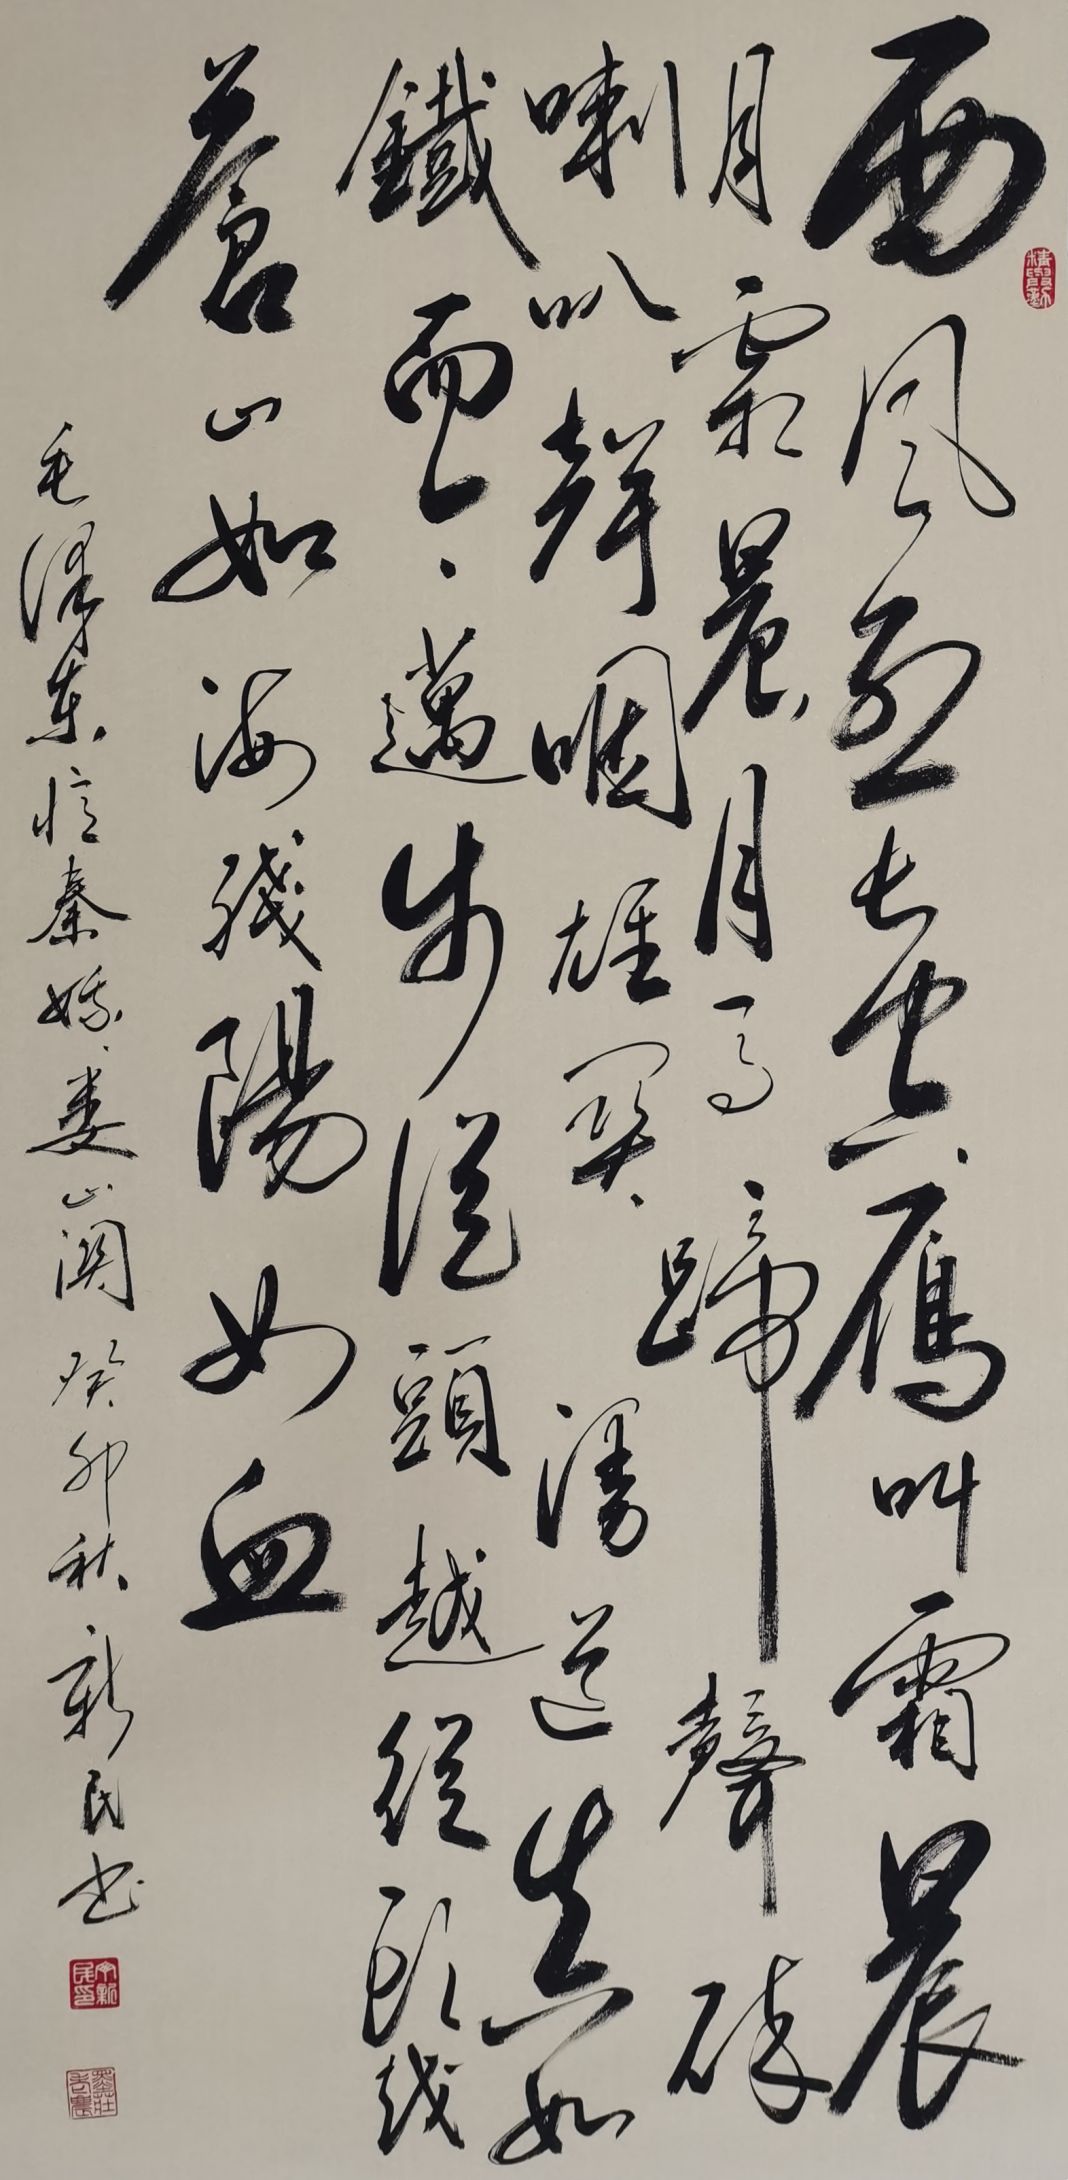 西風烈長空雁叫霜晨
月霜晨月馬蹄聲碎
喇叭聲咽雄關漫道真如
鐵而今邁步從頭越從頭越
蒼山如海殘陽如血
毛澤東憶秦娥婁山關癸卯秋新民书